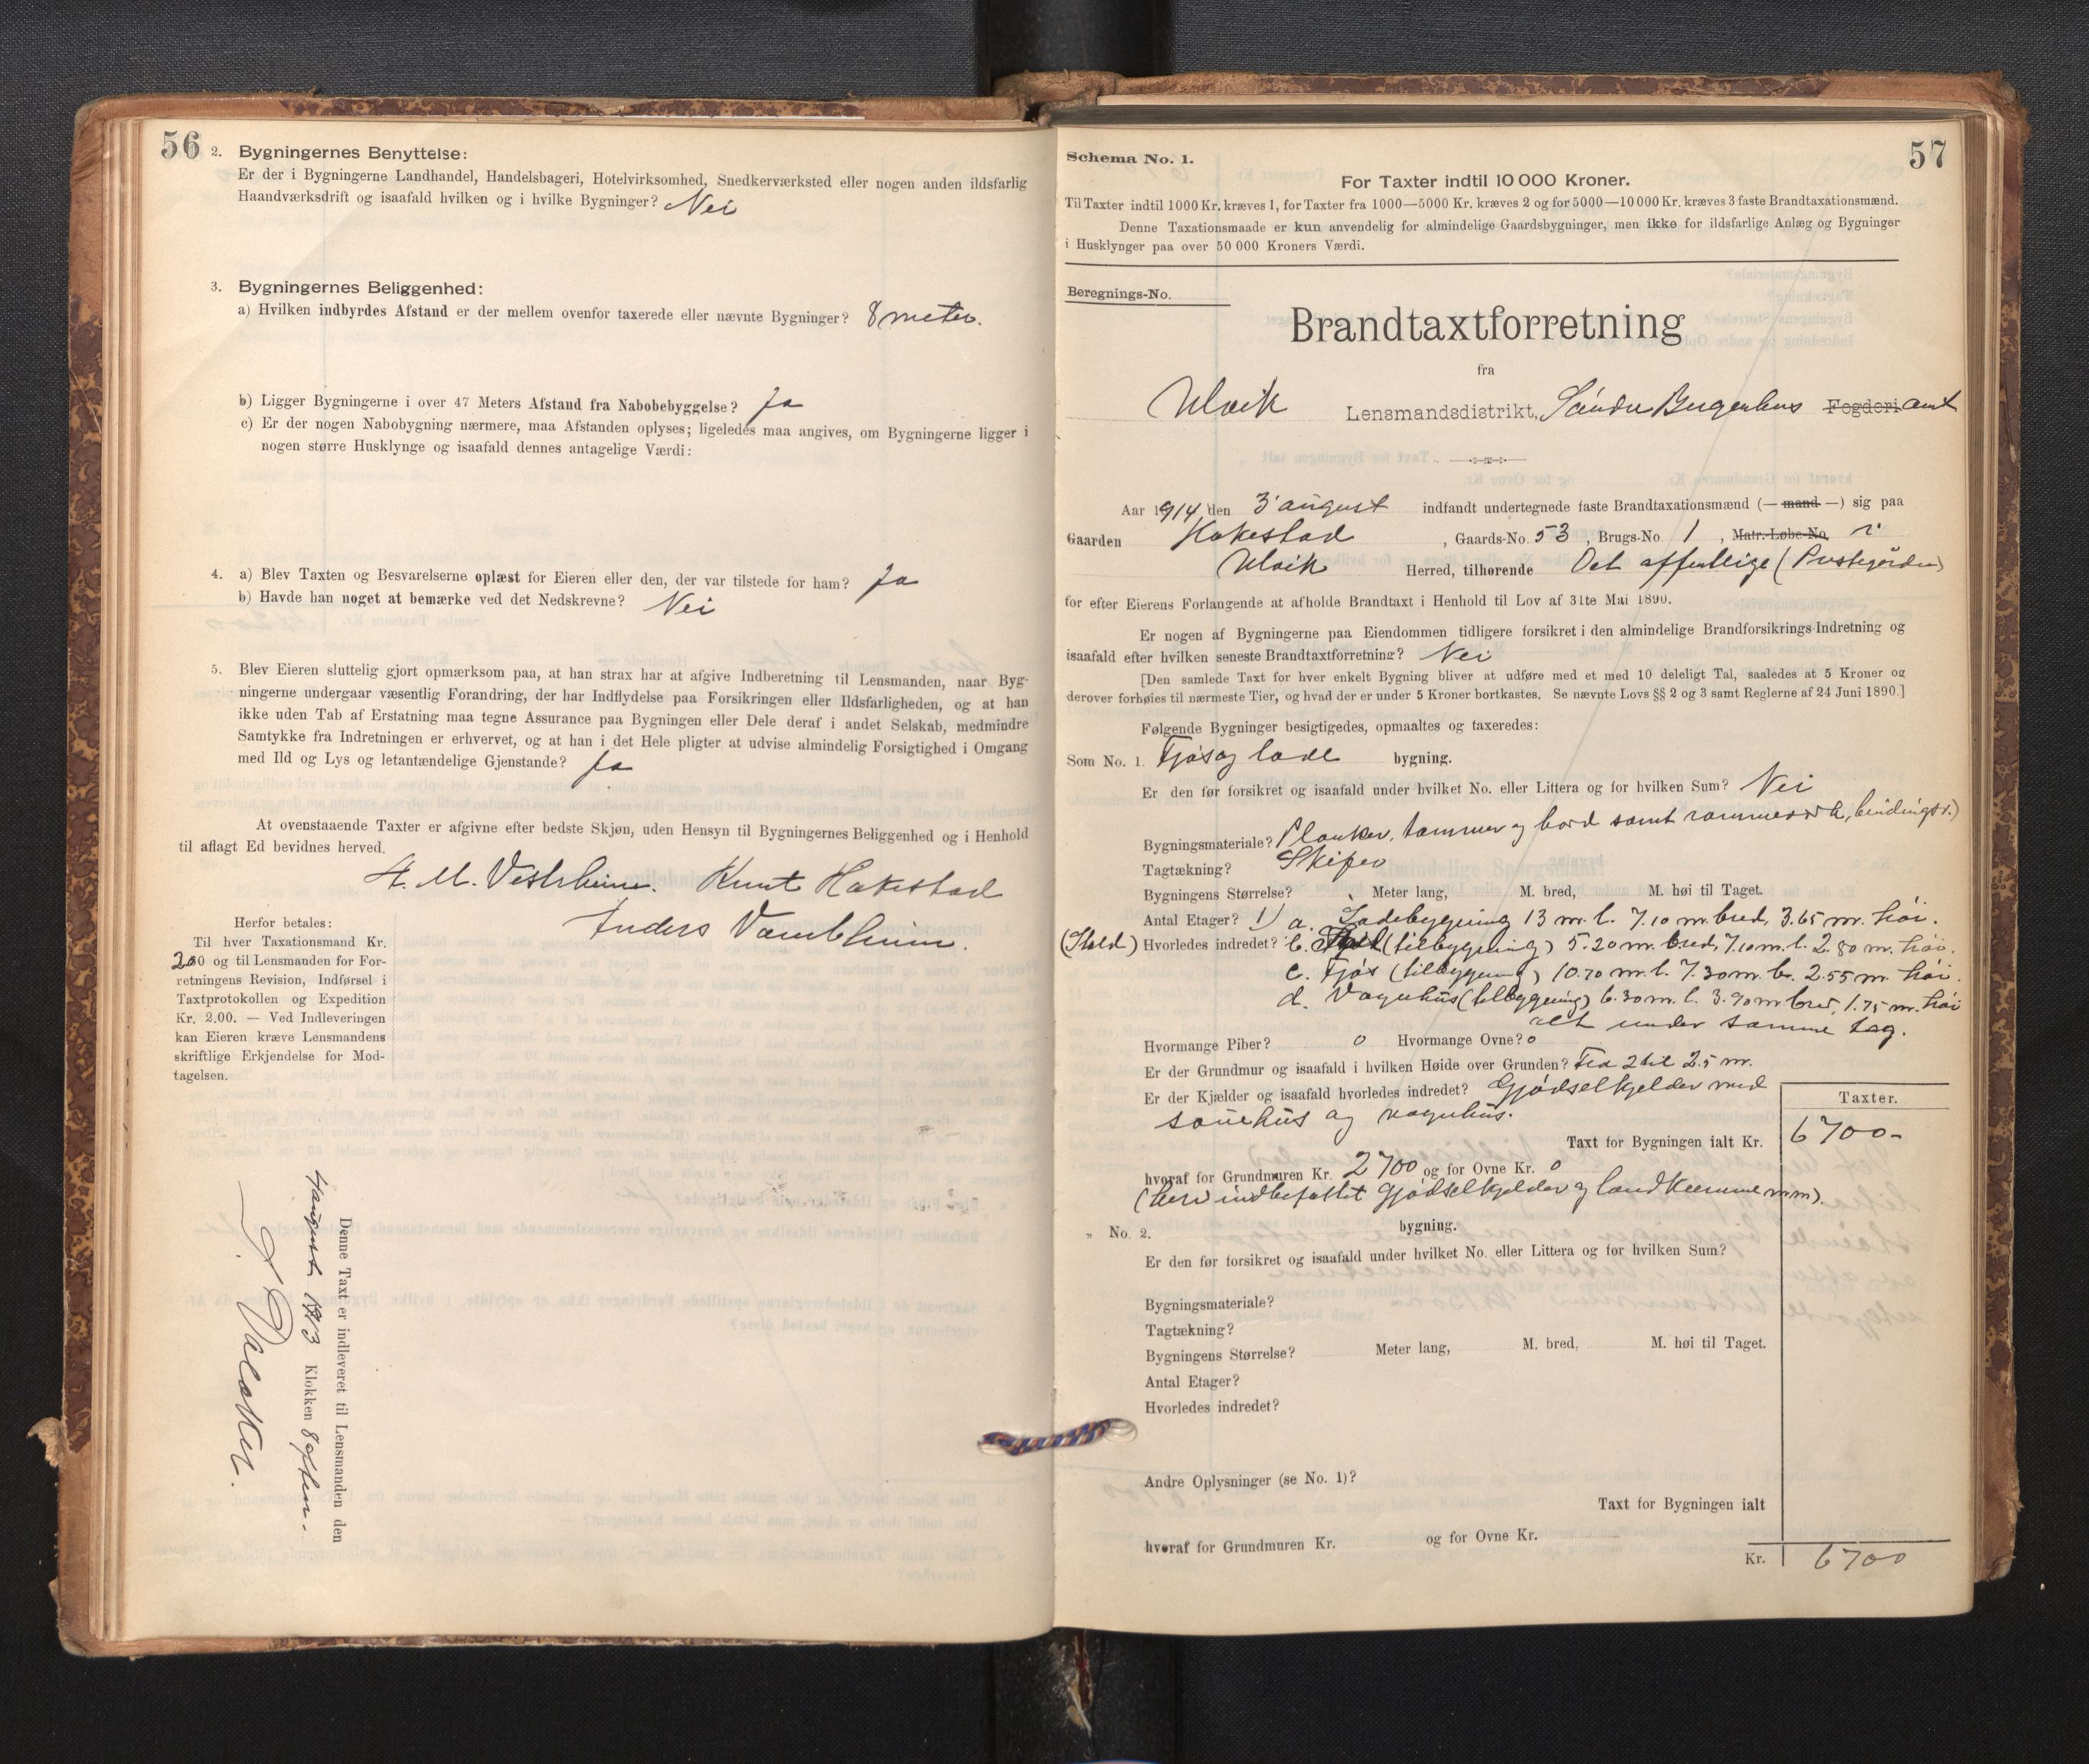 56
2. Bygningernes Benyttelse:
Er der i Bygningerne Landhandel, Handelsbageri, Hotelvirksomhed, Snedkerværksted eller nogen anden ildsfarlig
Haandværksdrift og isaafald hvilken og i hvilke Bygninger? Nei
3. Bygningernes Beliggenhed:
a) Hvilken indbyrdes Afstand er der mellem ovenfor taxerede eller nævnte Bygninger? 8 meter.
b) Ligger Bygningerne i over 47 Meters Afstand fra Nabobebyggelse? Ja
c) Er der nogen Nabobygning nærmere, maa Afstanden oplyses; ligeledes maa angives, om Bygningerne ligger i
nogen større Husklynge og isaafald dennes antagelige Værdi:
4. a) Blev Taxten og Besvarelserne oplæst for Eieren eller den, der var tilstede for ham? Ja
b) Havde han noget at bemærke ved det Nedskrevne? Nei
5. Blev Eieren sluttelig gjort opmærksom paa, at han strax har at afgive Indberetning til Lensmanden, naar Byg-
ningerne undergaar væsentlig Forandring, der har Indflydelse paa Forsikringen eller Ildsfarligheden, og at han
ikke uden Tab af Erstatning maa tegne Assurance paa Bygningen eller Dele deraf i andet Selskab, medmindre
Samtykke fra Indretningen er erhvervet, og at han i det Hele pligter at udvise almindelig Forsigtighed i Omgang
med Ild og Lys og letantændelige Gjenstande? Ja
At ovenstaaende Taxter er afgivne efter bedste Skjøn, uden Hensyn til Bygningernes Beliggenhed og i Henhold
til aflagt Ed bevidnes herved.
H. M. Vestrheim. Knut Hakestad
Anders Vambheim.
Herfor betales:
Til hver Taxationsmand Kr.
2.00 og til Lensmanden for For-
retningens Revision, Indførsel i
Taxtprotokollen og Expedition
Kr. 2.00. — Ved Indleveringen
kan Eieren kræve Lensmandens
skriftlige Erkjendelse for Mod-
tagelsen.
Denne Taxt er indleveret til Lensmanden den
4 august 1913 Klokken 8 eften.
57
Schema No. 1.
For Taxter indtil 10 000 Kroner.
Til Taxter indtil 1000 Kr. kræves 1, for Taxter fra 1000—5000 Kr. kræves 2 og for 5000—10 000 Kr. kræves 3 faste Brandtaxationsmænd.
Denne Taxationsmaade er kun anvendelig for almindelige Gaardsbygninger, men ikke for ildsfarlige Anlæg og Bygninger
i Husklynger paa over 50 000 Kroners Værdi.
Beregnings-No.
Brandtaxtforretning
fra
Ulvik Lensmandsdistrikt, Søndre Bergenhus Fogderi amt
Aar 1914 den 3 august indfandt undertegnede faste Brandtaxationsmænd (— mand —) sig paa
Gaarden Hakestad, Gaards-No. 53, Brugs-No. 1, Matr.-Løbe-No. i
Ulvik Herred, tilhørende Det offentlige (Prestegården)
for efter Eierens Forlangende at afholde Brandtaxt i Henhold til Lov af 31te Mai 1890.
Er nogen af Bygningerne paa Eiendommen tidligere forsikret i den almindelige Brandforsikrings-Indretning og
isaafald efter hvilken seneste Brandtaxtforretning? Nei
[Den samlede Taxt for hver enkelt Bygning bliver at udføre med et med 10 deleligt Tal, saaledes at 5 Kroner og
derover forhøies til nærmeste Tier, og hvad der er under 5 Kroner bortkastes. Se nævnte Lovs §§ 2 og 3 samt Reglerne af 24 Juni 1890.]
Følgende Bygninger besigtigedes, opmaaltes og taxeredes:
Som No. 1. Fjøs og lade bygning.
Er den før forsikret og isaafald under hvilket No. eller Littera og for hvilken Sum? Nei
Bygningsmateriale? Planker, tømmer og bord samt rammeverk, bindingsv.)
Tagtækning? Skifer
Bygningens Størrelse? Meter lang, M. bred, M. høi til Taget.
Antal Etager? 1) a. Ladebygning 13 m. l. 7.10 m. bred, 3.65 m. høi.
(Stald) Hvorledes indredet? b. (tilbygning) 5.20 m. bred, 7.10 m. l. 2.80 m. høi.
c. Fjøs (tilbygning) 10.70 m. l. 7.30 m. br. 2.55 m. høi.
d. Vognhus (tilbygning) 6.30 m. l. 3.90 m. bred, 1.75 m. høi
alt under samme tag.
Hvormange Piber? 0 Hvormange Ovne? 0
Er der Grundmur og isaafald i hvilken Høide over Grunden? Fra 2 til 2.5 m.
Er der Kjælder og isaafald hvorledes indredet? Gjødselkjelder med
sauehus og vognhus.
Taxter.
Taxt for Bygningen ialt Kr. 6700-
hvoraf for Grundmuren Kr. 2700 og for Ovne Kr. 0
(heri indbefattet gjødselkjelder og landkummer m.m).
" No. 2. bygning.
Er den før forsikret og isaafald under hvilket No. eller Littera og for hvilken Sum?
Bygningsmateriale?
Tagtækning?
Bygningens Størrelse? Meter lang, M. bred, M. høi til Taget.
Antal Etager?
Hvorledes indredet?
Andre Oplysninger (se No. 1)?
Taxt for Bygningen ialt
hvoraf for Grundmuren Kr. og for Ovne Kr.
Kr. 6700